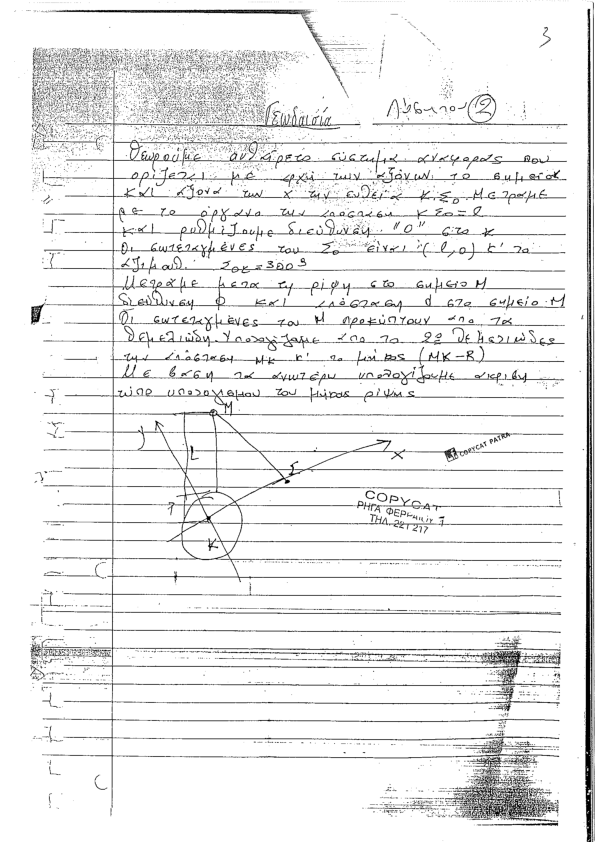 3
Γεωδαισία
②
Θεωρούμε αυθαίρετο σύστημα αναφοράς που
ορίζεται με αρχή των αξόνων το σημείο
Κ και άξονα των χ την ευθεία Κ.Σο. Μετράμε
με το όργανο την απόσταση ΚΣο=l
και ρυθμίζουμε διεύθυνση "0" στο Κ
Οι συντεταγμένες του Σο είναι (l,0) κ' το
αζιμούθ. = 300ᵍ
Μετράμε μετά τη ρίψη στο σημείο Μ
διεύθυνση φ και απόσταση d στο σημείο Μ
Οι συντεταγμένες του Μ προκύπτουν από τα
θεμελιώδη. Υπολογίζαμε από το 2ο θεμελιώδες
την απόσταση ΜΚ κ' το μήκος (ΜΚ-R)
Με βάση τα ανωτέρω υπολογίζουμε ακριβή
τύπο υπολογισμού του μήκος ρίψης
M
y
L
Σ
x
K
COPYCAT PATRA
COPYCAT
ΡΗΓΑ ΦΕΡ
ΤΗΛ. 221 217